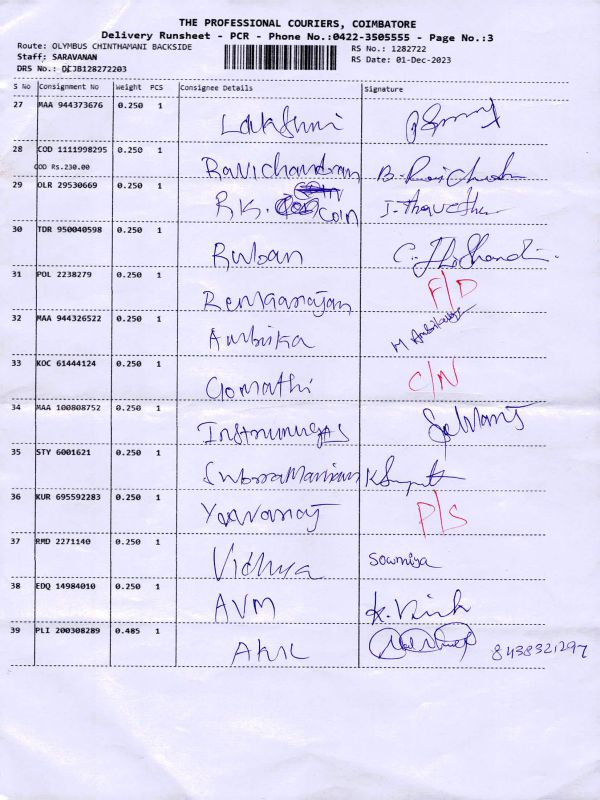 THE PROFESSIONAL COURIERS, COIMBATORE
Delivery Runsheet - PCR - Phone No.:0422-3505555 - Page No.:3
Route: OLYMBUS CHINTHAMANI BACKSIDE
RS No.: 1282722
Staff: SARAVANAN
RS Date: 01-Dec-2023
DRS No.: DEJB128272203
S No Consignment No Weight PCS Consignee Details Signature
27 MAA 944373676 0.250 1 Lakshmi
28 COD 1111998295 0.250 1 Ravichandran
COD Rs.230.00
29 OLR 29530669 0.250 1 RK. COIN
30 TDR 950040598 0.250 1 Ruban
31 POL 2238279 0.250 1 Renganayan F/D
32 MAA 944326522 0.250 1 Ambika M Ambika
33 KOC 61444124 0.250 1 Gomathi C/N
34 MAA 100808752 0.250 1 Selvaraj
35 STY 6001621 0.250 1 Subramaniyan
36 KUR 695592283 0.250 1 Yuvaraj P/S
37 RMD 2271140 0.250 1 Vidhya Sowmiya
38 EDQ 14984010 0.250 1 AVM
39 PLI 200308289 0.485 1 AKIL 8438321297